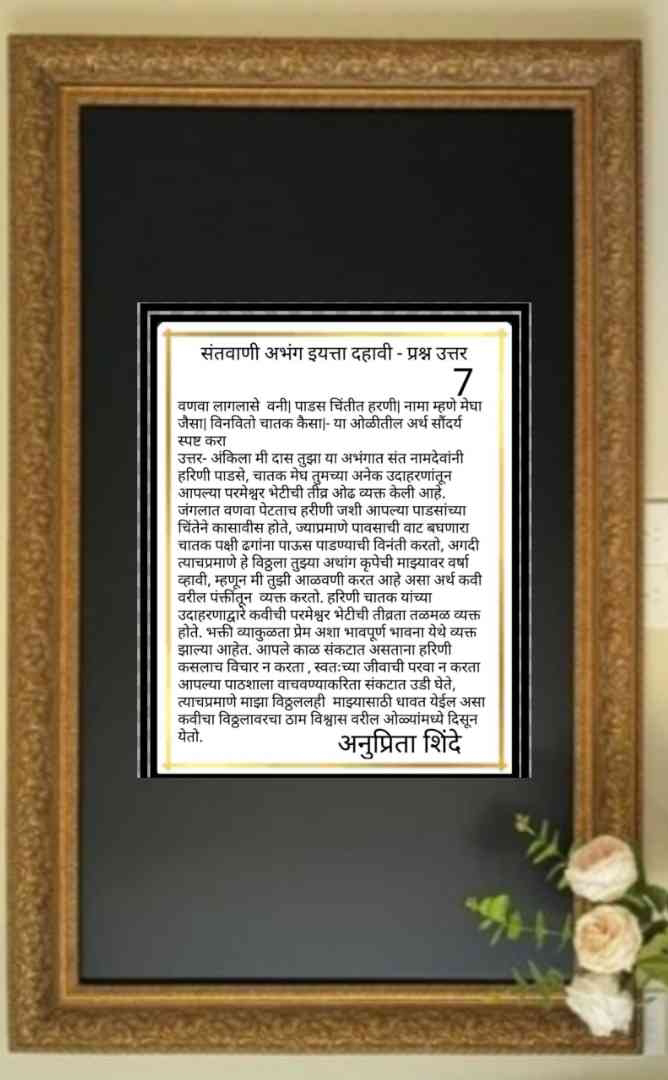 संतवाणी अभंग इयत्ता दहावी - प्रश्न उत्तर
7
वणवा लागलासे  वनी| पाडस चिंतीत हरणी| नामा म्हणे मेघा
जैसा| विनवितो चातक कैसा|- या ओळीतील अर्थ सौंदर्य
स्पष्ट करा
उत्तर- अंकिला मी दास तुझा या अभंगात संत नामदेवांनी
हरिणी पाडसे, चातक मेघ तुमच्या अनेक उदाहरणांतून
आपल्या परमेश्वर भेटीची तीव्र ओढ व्यक्त केली आहे.
जंगलात वणवा पेटताच हरीणी जशी आपल्या पाडसांच्या
चिंतेने कासावीस होते, ज्याप्रमाणे पावसाची वाट बघणारा
चातक पक्षी ढगांना पाऊस पाडण्याची विनंती करतो, अगदी
त्याचप्रमाणे हे विठ्ठला तुझ्या अथांग कृपेची माझ्यावर वर्षा
व्हावी, म्हणून मी तुझी आळवणी करत आहे असा अर्थ कवी
वरील पंक्तींतून  व्यक्त करतो. हरिणी चातक यांच्या
उदाहरणाद्वारे कवीची परमेश्वर भेटीची तीव्रता तळमळ व्यक्त
होते. भक्ती व्याकुळता प्रेम अशा भावपूर्ण भावना येथे व्यक्त
झाल्या आहेत. आपले काळ संकटात असताना हरिणी
कसलाच विचार न करता , स्वतःच्या जीवाची परवा न करता
आपल्या पाठशाला वाचवण्याकरिता संकटात उडी घेते,
त्याचप्रमाणे माझा विठ्ठललही  माझ्यासाठी धावत येईल असा
कवीचा विठ्ठलावरचा ठाम विश्वास वरील ओळ्यांमध्ये दिसून
येतो.
अनुप्रिता शिंदे